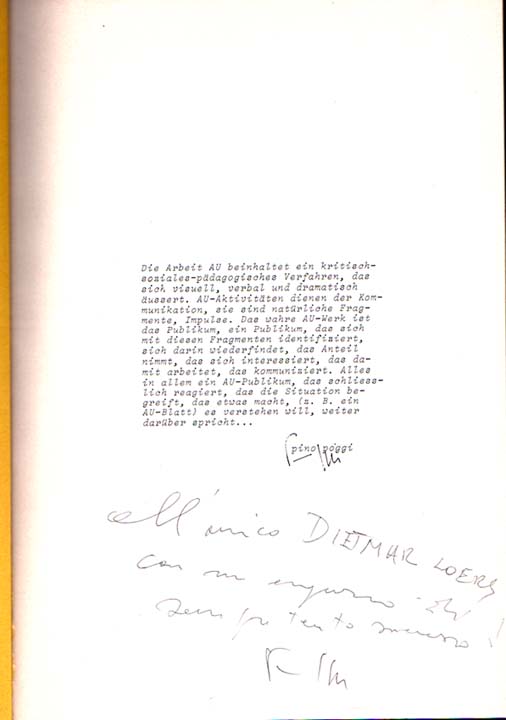 Die Arbeit AU beinhaltet ein kritisch-
soziales-pädagogisches Verfahren, das
sich visuell, verbal und dramatisch
äussert. AU-Aktivitäten dienen der Kom-
munikation, sie sind natürliche Frag-
mente, Impulse. Das wahre AU-Werk ist
das Publikum, ein Publikum, das sich
mit diesen Fragmenten identifiziert,
sich darin wiederfindet, das Anteil
nimmt, das sich interessiert, das da-
mit arbeitet, das kommuniziert. Alles
in allem ein AU-Publikum, das schliess-
lich reagiert, das die Situation be-
greift, das etwas macht, (z. B. ein
AU-Blatt) es verstehen will, weiter
darüber spricht...
pino poggi
All'amico DIETMAR
con un
sempre tanto successo!